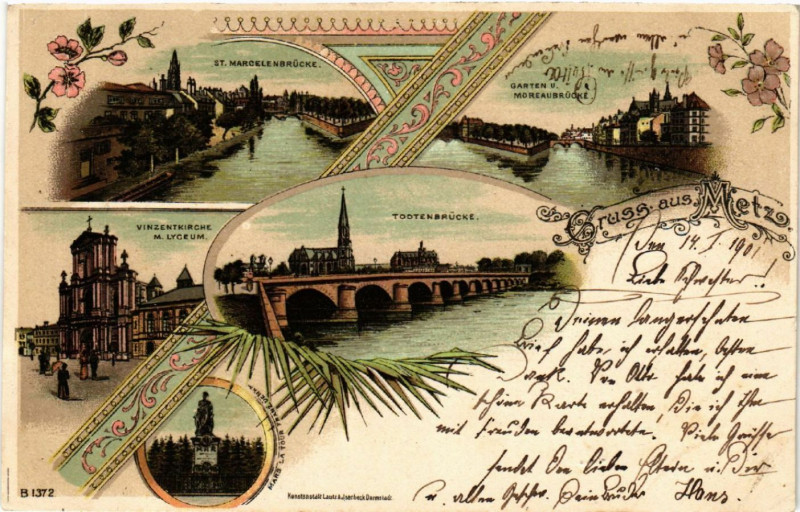 ST. MARCELENBRÜCKE.
GARTEN U.
MOREAUBRÜCKE
VINZENTKIRCHE
M. LYCEUM.
TODTENBRÜCKE.
Gruss aus Metz
Den 14. I. 1901
Liebe Schwester!
Deinen langersehnten
Brief habe ich erhalten, besten
Dank. Von Otto habe ich eine
schöne Karte erhalten, die ich ihm
mit Freuden beantwortete. Viele Grüsse
sendet den lieben Eltern u. Dir
u. allen Geschw. Dein Bruder Hans.
MARS LA TOUR
B 1372
Kunstanstalt Lautz & Isenbeck Darmstadt.